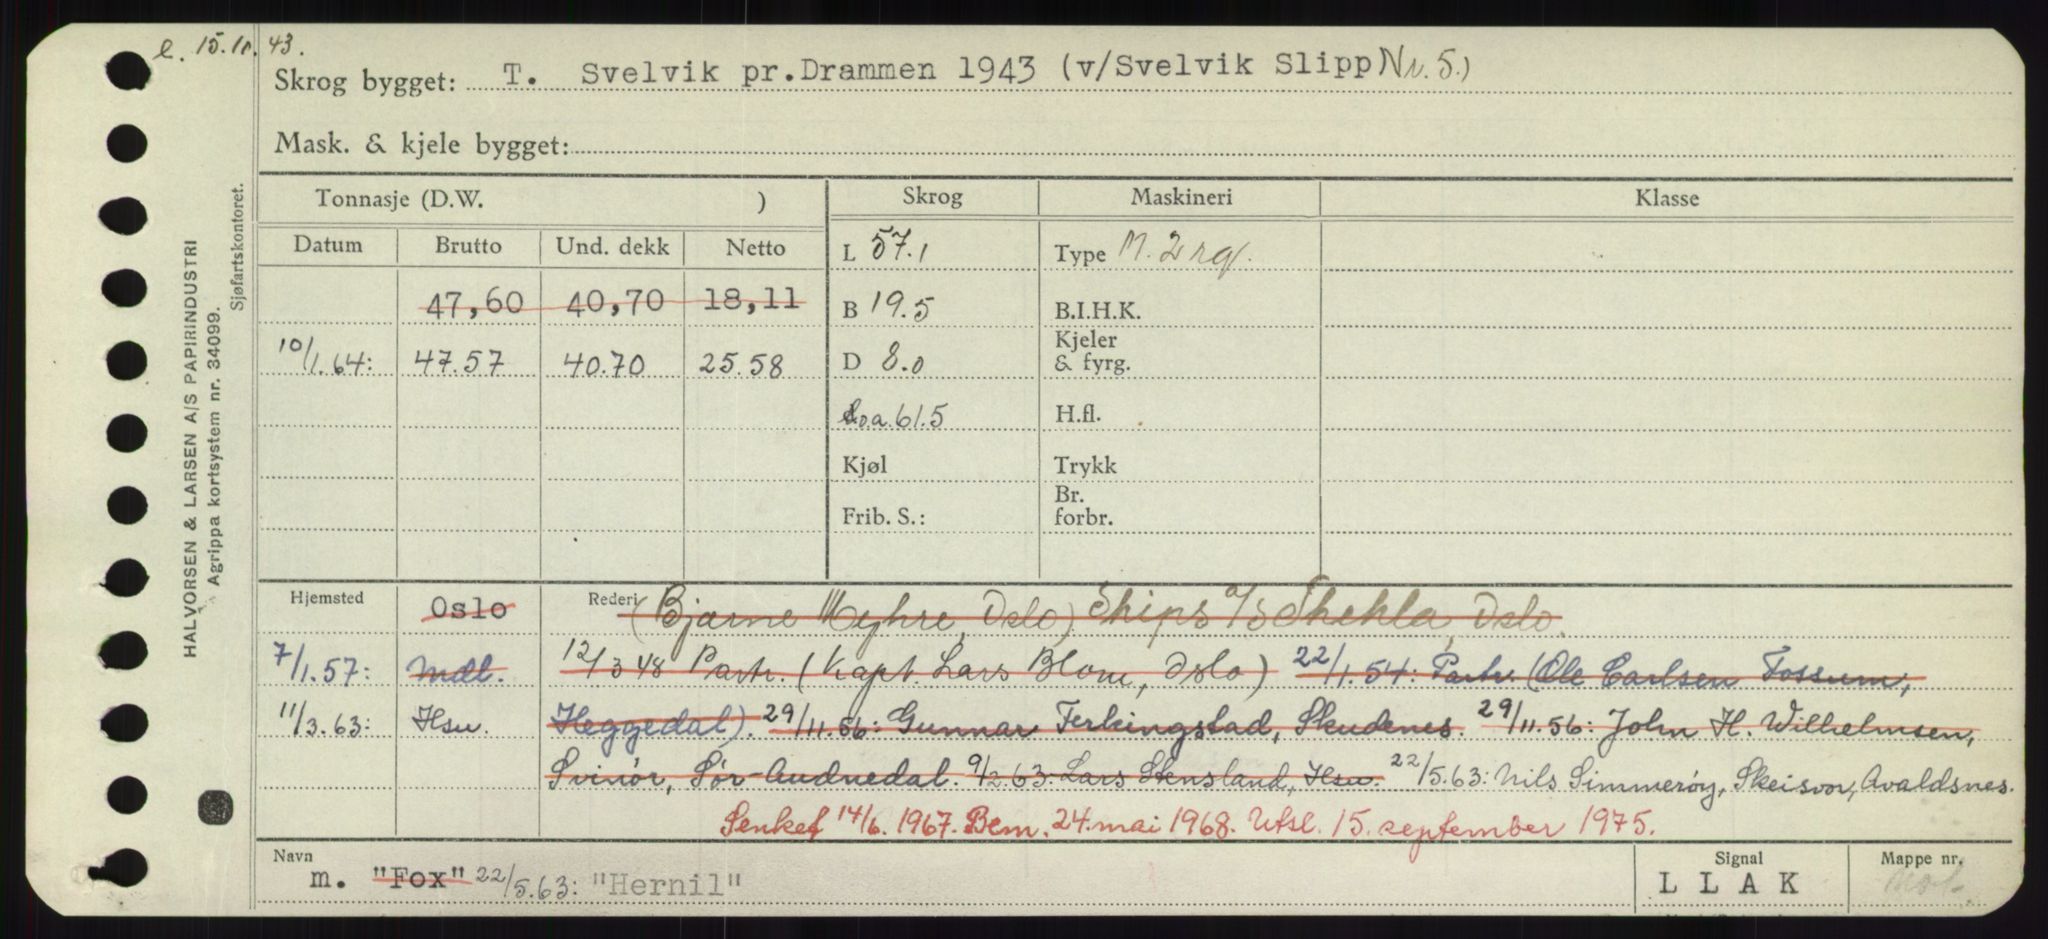 e. 15.10.43.
Skrog bygget: T. Svelvik pr.Drammen 1943 (v/Svelvik Slipp Nr. 5.)
Mask. & kjele bygget:
HALVORSEN & LARSEN A/S PAPIRINDUSTRI
Agrippa kortsystem nr. 34099.
Sjøfartskontoret.
Tonnasje (D.W. ) Skrog Maskineri Klasse
Datum Brutto Und. dekk Netto L 57.1 Type M.
47,60 40,70 18,11 B 19.5 B.I.H.K.
10/1.64: 47.57 40.70 25.58 D 8.0 Kjeler & fyrg.
L.o.a. 61.5 H.fl.
Kjøl Trykk
Frib. S.: Br. forbr.
Hjemsted Oslo Rederi (Bjarne Myhre, Oslo) Skips a/s Shehla, Oslo.
7/1.57: Mdl. 12/3 48 Partr. (Kapt. Lars Blom, Oslo) 22/1.54: Partr. (Ole Carlsen Fossum,
11/3.63: Hsu. Heggedal). 29/11.56: Gunnar Ferkingstad, Skudenes. 29/11.56: John H. Wilhelmsen,
Svinør, Sør-Audnedal. 9/2.63: Lars Stensland, Hsu. 22/5.63: Nils Simmerøy, Skeisvor, Avaldsnes.
Senket 14/6. 1967. Bem. 24. mai 1968. Utsl. 15. september 1975.
Navn m. "Fox" 22/5.63: "Hernil"
Signal LLAK
Mappe nr.